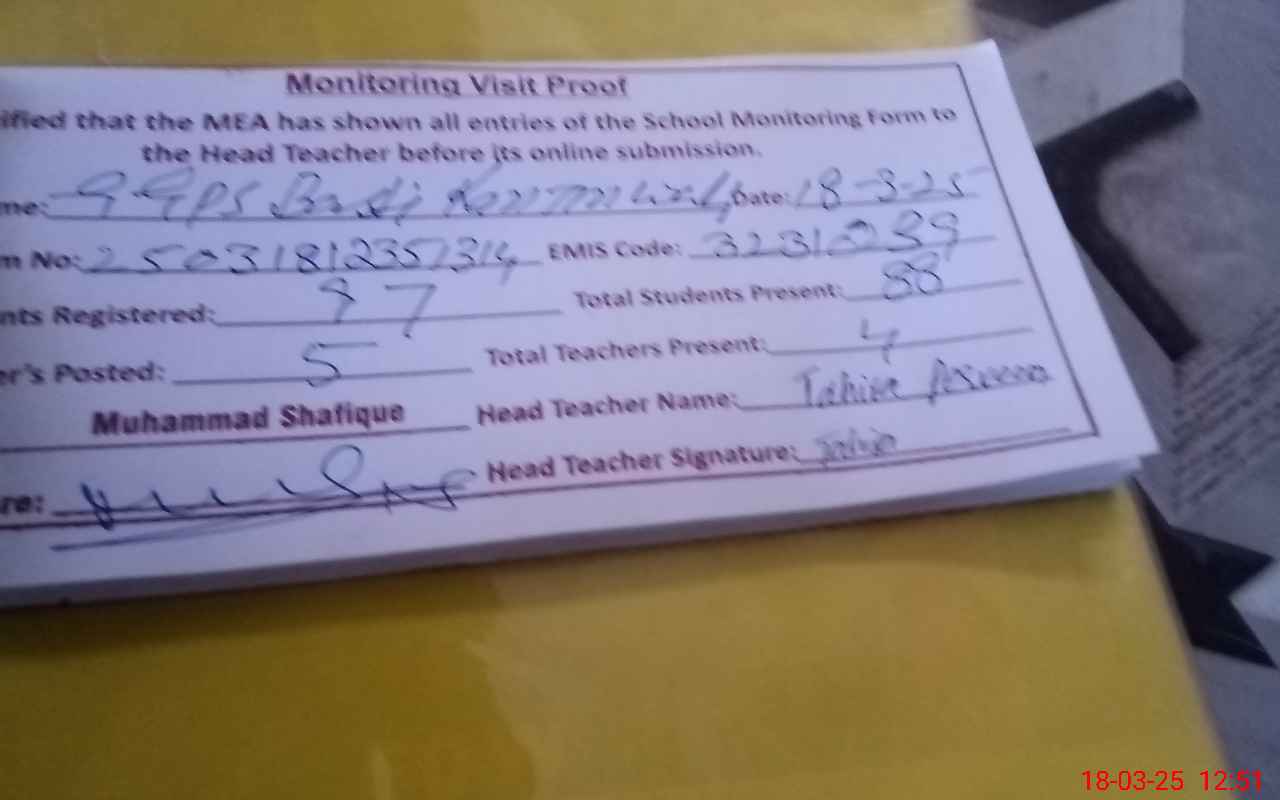 Monitoring Visit Proof
ified that the MEA has shown all entries of the School Monitoring Form to
the Head Teacher before its online submission.
me: GGPS Basti Date: 18-3-25
m No: 25031812357314 EMIS Code: 32310239
nts Registered: 97 Total Students Present: 88
er's Posted: 5 Total Teachers Present: 4
Muhammad Shafique Head Teacher Name: Tahira
re: Head Teacher Signature:
18-03-25 12:51